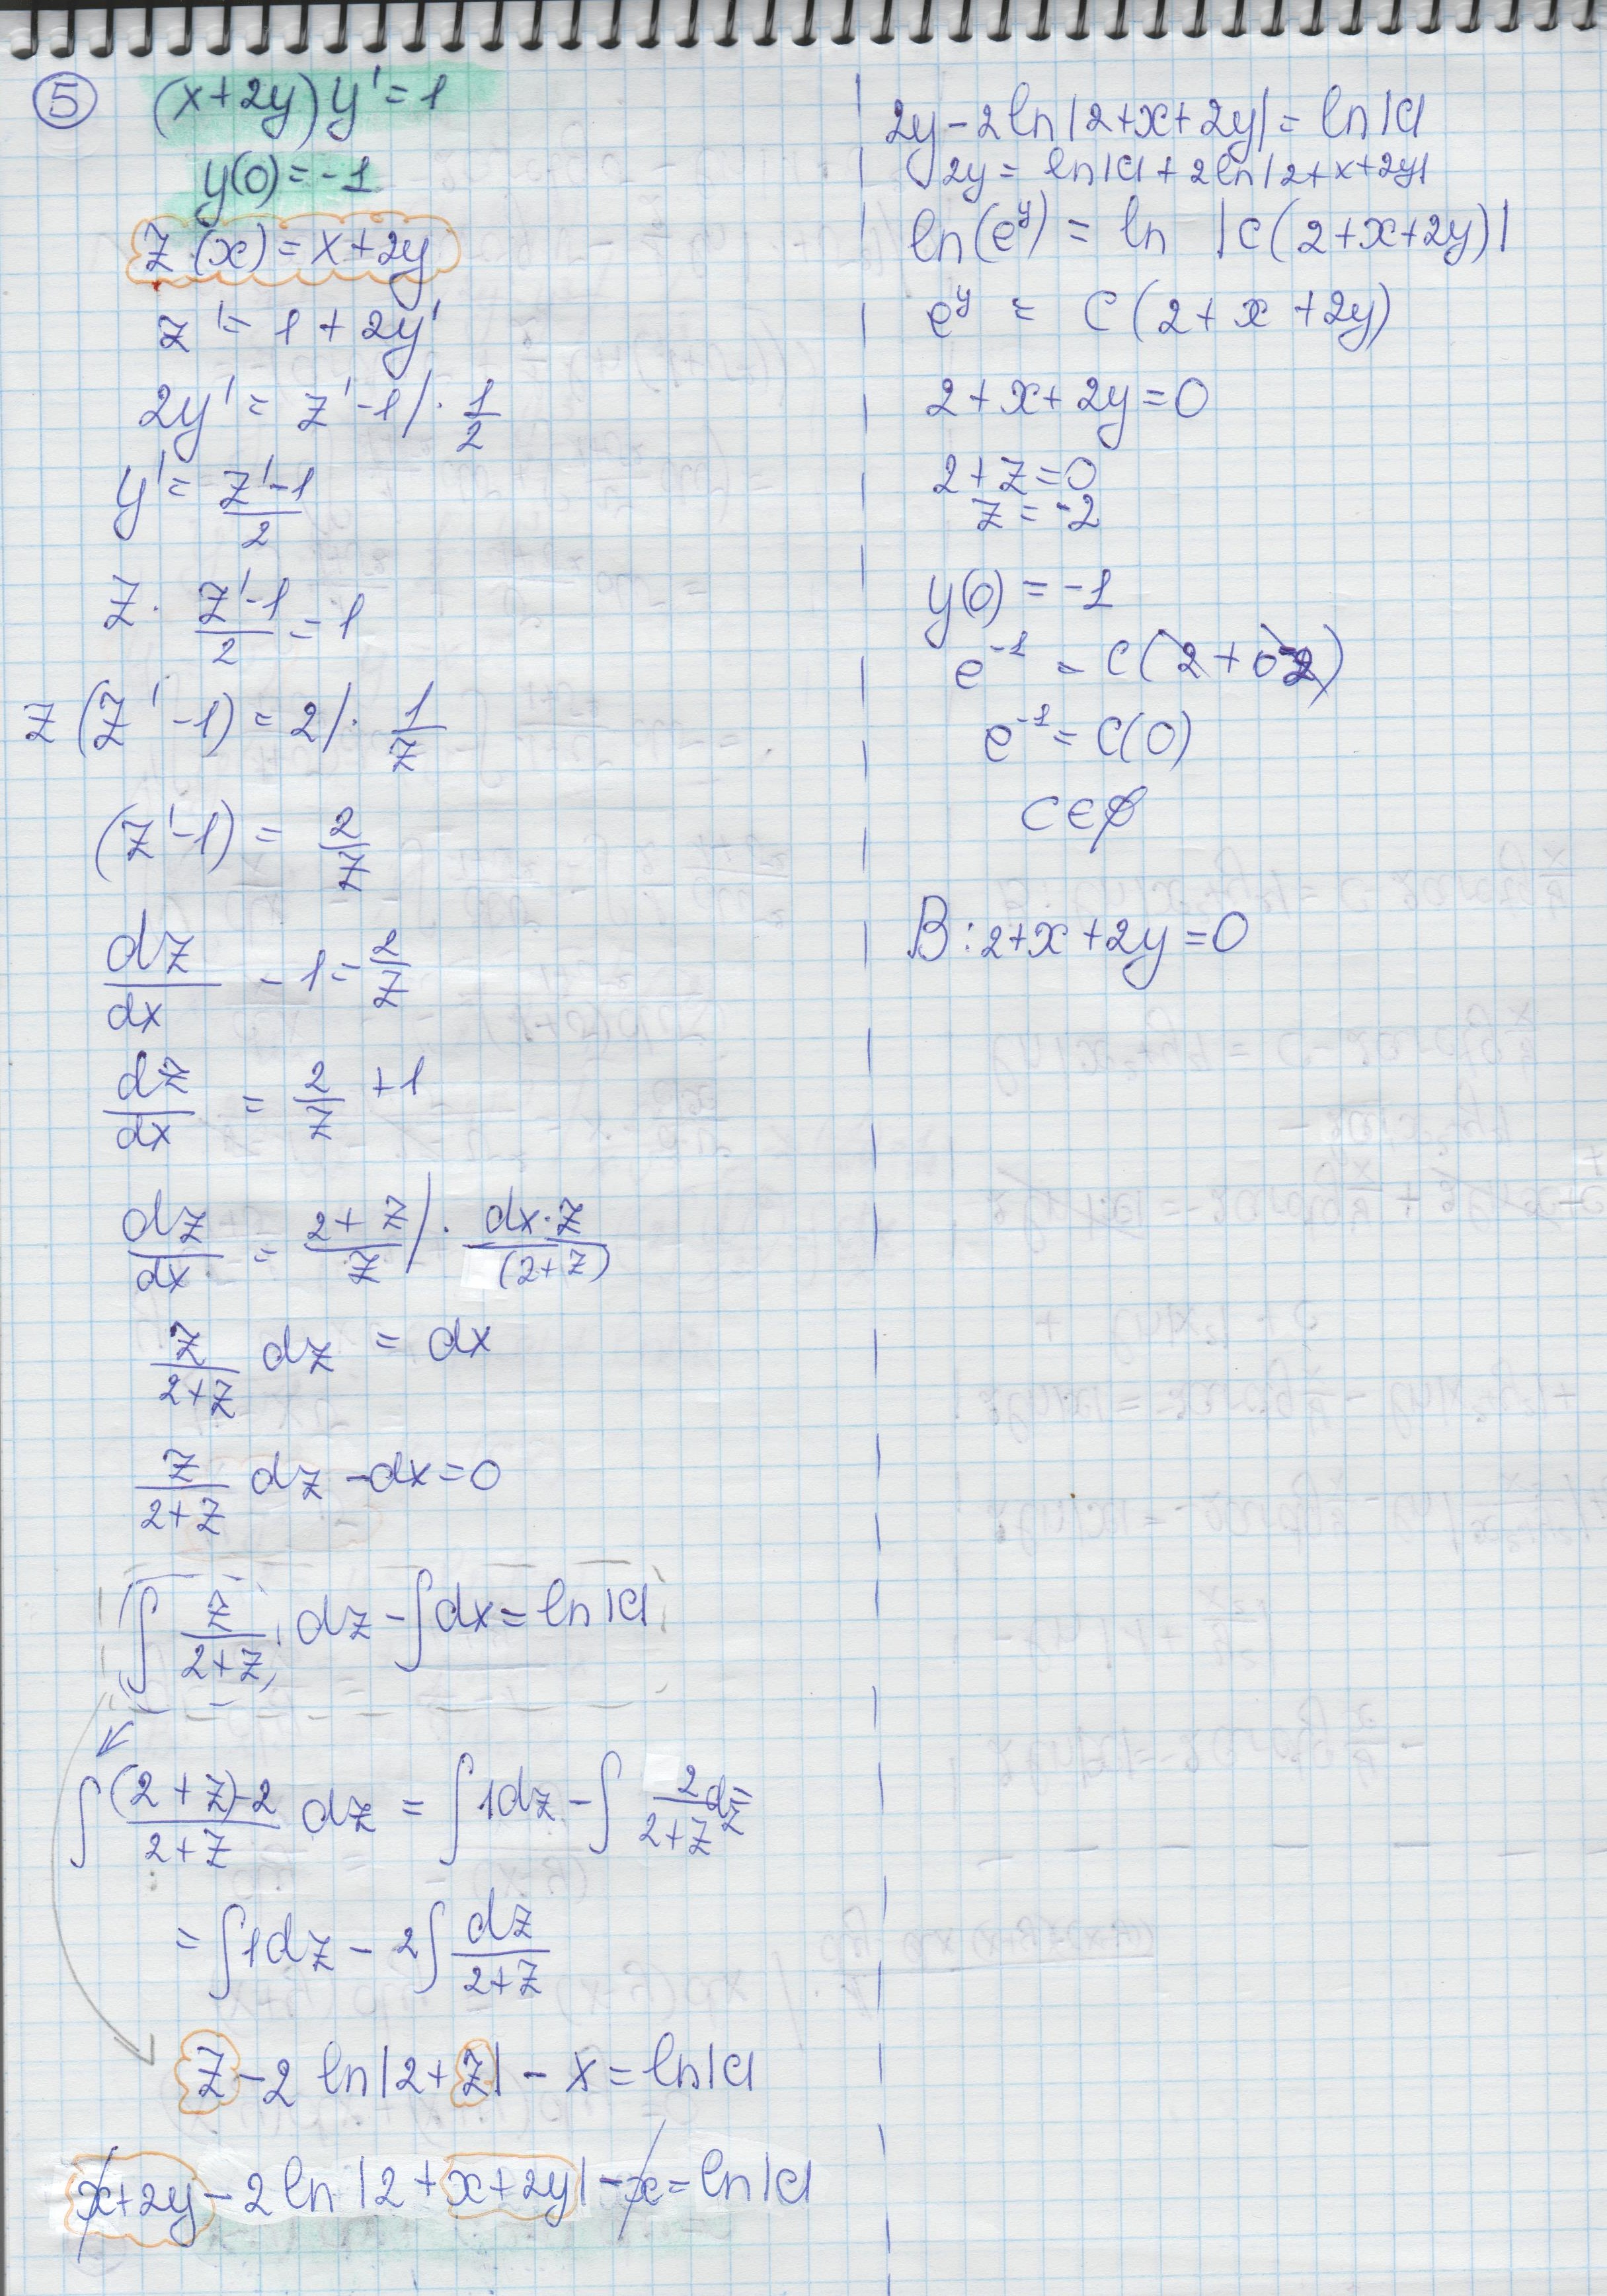 ⑤ (x+2y)y'=1
y(0)=-1
z(x)=x+2y
z'=1+2y'
2y'=z'-1 /·1/2
y'=(z'-1)/2
z·(z'-1)/2=1
z(z'-1)=2 /·1/z
(z'-1)=2/z
dz/dx -1=2/z
dz/dx = 2/z +1
dz/dx = (2+z)/z /· dx·z/(2+z)
z/(2+z) dz = dx
z/(2+z) dz -dx=0
∫ z/(2+z) dz -∫dx=ln|c|
∫ ((2+z)-2)/(2+z) dz = ∫1dz -∫ 2/(2+z) dz
=∫1dz - 2∫ dz/(2+z)
z-2 ln|2+z| - x=ln|c|
x+2y-2ln|2+x+2y|-x=ln|c|
2y-2ln|2+x+2y|=ln|c|
2y=ln|c|+2ln|2+x+2y|
ln(e^y) = ln |c(2+x+2y)|
e^y = C(2+x+2y)
2+x+2y=0
2+z=0
z=-2
y(0)=-1
e^-1 = c(2+0-2)
e^-1=C(0)
C∈∅
B: 2+x+2y=0